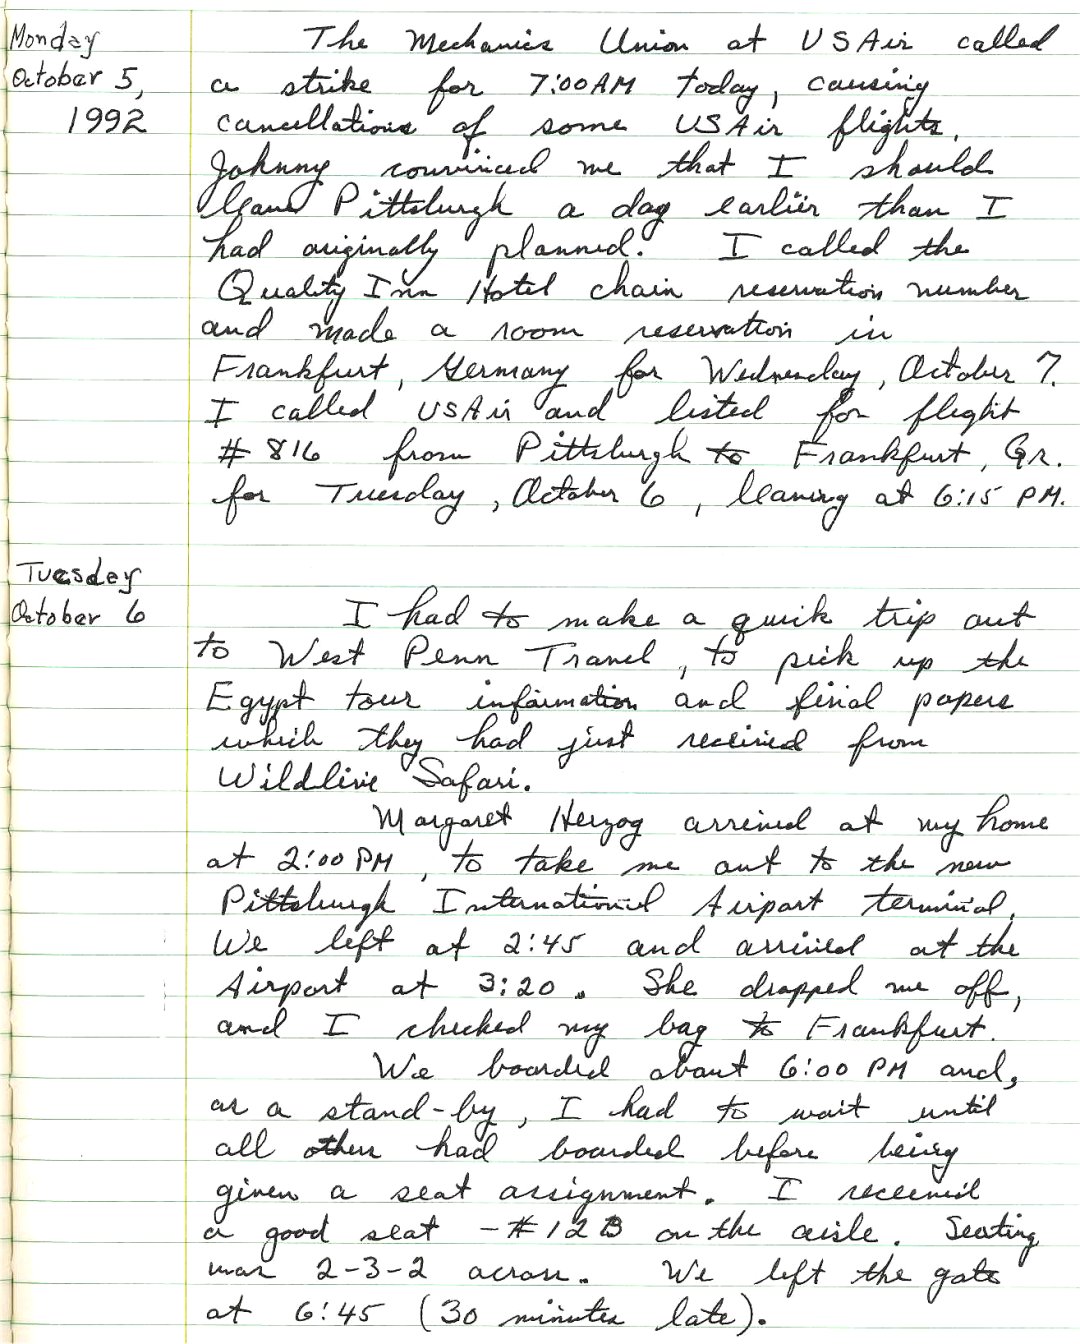 Monday
October 5,
1992
The Mechanics Union at USAir called
a strike for 7:00AM today, causing
cancellations of some USAir flights.
Johnny convinced me that I should
leave Pittsburgh a day earlier than I
had originally planned. I called the
Quality Inn Hotel chain reservation number
and made a room reservation in
Frankfurt, Germany for Wednesday, October 7.
I called USAir and listed for flight
# 816 from Pittsburgh to Frankfurt, Gr.
for Tuesday, October 6, leaving at 6:15 PM.
Tuesday
October 6
I had to make a quick trip out
to West Penn Travel, to pick up the
Egypt tour information and final papers
which they had just received from
Wildlive Safari.
Margaret Herzog arrived at my home
at 2:00 PM, to take me out to the new
Pittsburgh International Airport terminal.
We left at 2:45 and arrived at the
Airport at 3:20. She dropped me off,
and I checked my bag to Frankfurt.
We boarded about 6:00 PM and,
as a stand-by, I had to wait until
all others had boarded before being
given a seat assignment. I received
a good seat - #12B on the aisle. Seating
was 2-3-2 across. We left the gate
at 6:45 (30 minutes late).